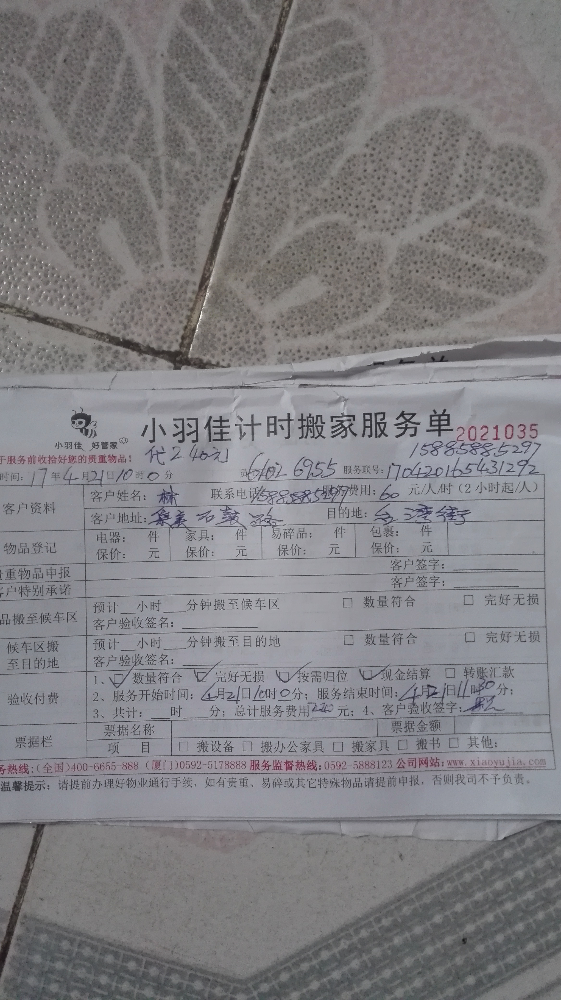 小羽佳 好管家
小羽佳计时搬家服务单 2021035
于服务前收拾好您的贵重物品! 代2 40元 15885885297
时间: 17年4月21日10时0分 6102 6955 服务跟号: 170420165431292
客户资料 客户姓名: 林 联系电话 费用: 60 元/人/时 (2小时起/人)
客户地址: 集美石鼓路 目的地: 台湾街
物品登记 电器: 件 家具: 件 易碎品: 件 包装: 件
保价: 元 保价: 元 保价: 元 保价: 元
贵重物品申报 客户签字:
客户特别承诺 客户签字:
品搬至候车区 预计 小时 分钟搬至候车区 □ 数量符合 □ 完好无损
客户验收签名:
候车区搬至目的地 预计 小时 分钟搬至目的地 □ 数量符合 □ 完好无损
客户验收签名:
验收付费 1、☑ 数量符合 ☑ 完好无损 ☑ 按需归位 ☑ 现金结算 □ 转账汇款
2、服务开始时间: 4月21日10时0分; 服务结束时间: 4月21日11时0分;
3、共计: 时 分; 总计服务费用240元; 4、客户签字:
票据栏 票据名称 票据金额
项 目 □ 搬设备 □ 搬办公家具 □ 搬家具 □ 搬书 □ 其他:
务热线:(全国)400-6655-888 (厦门)0592-5178888 服务监督热线:0592-5888123 公司网站:www.xiaoyujia.com
温馨提示: 请提前办理好物业通行手续, 如有贵重、易碎或其它特殊物品请提前申报, 否则我司不予负责。